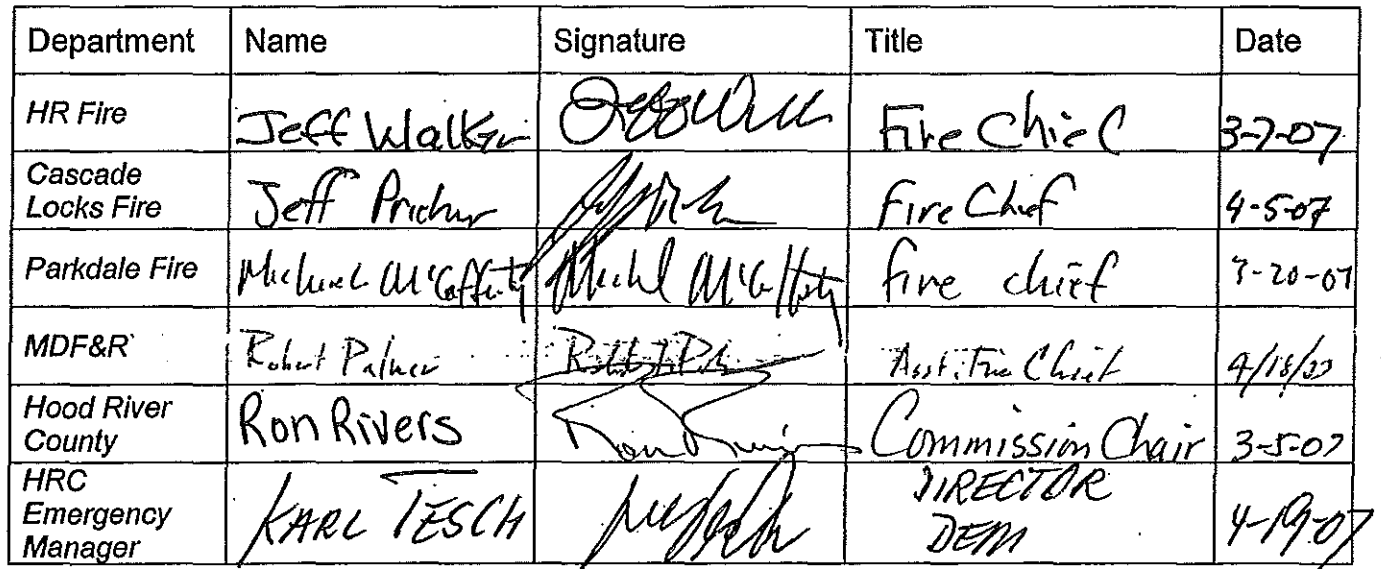 Department Name Signature Title Date
HR Fire Jeff Walker Fire Chief 3-7-07
Cascade
Locks Fire Jeff Pricher Fire Chief 4-5-07
Parkdale Fire Michael McCafferty Michael McCafferty fire chief 3-20-07
MDF&R Robert Palmer Asst. Fire Chief
Hood River
County Ron Rivers Ron Rivers Commission Chair 3-5-07
HRC
Emergency
Manager KARL TESCH DIRECTOR
DEM 4-19-07